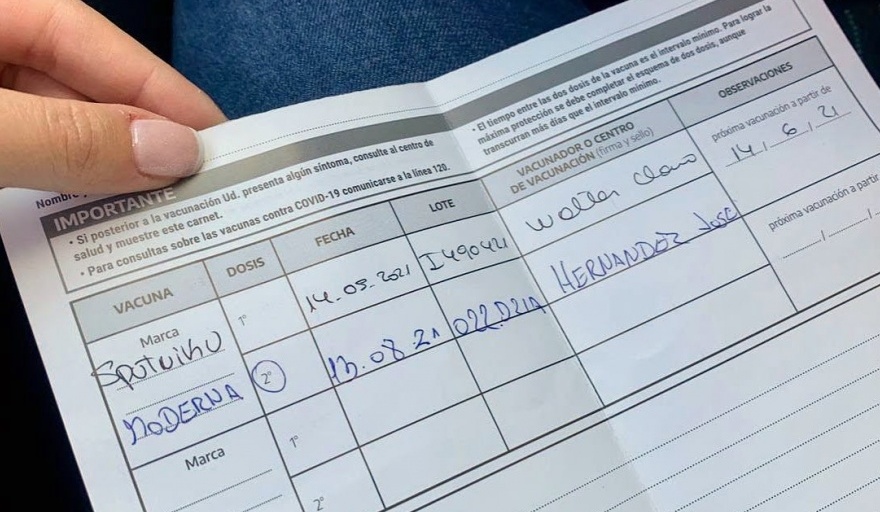 Nombre
IMPORTANTE
• Si posterior a la vacunación Ud. presenta algún síntoma, consulte al centro de
salud y muestre este carnet.
• Para consultas sobre las vacunas contra COVID-19 comunicarse a la línea 120.
• El tiempo entre las dos dosis de la vacuna es el intervalo mínimo. Para lograr la
máxima protección se debe completar el esquema de dos dosis, aunque
transcurran más días que el intervalo mínimo.
VACUNA DOSIS FECHA LOTE VACUNADOR O CENTRO
DE VACUNACIÓN (firma y sello) OBSERVACIONES
Marca 1° 14.05.2021 I490421 Walter Claro próxima vacunación a partir de
Sputnik V 14/6/21
MODERNA 2° 13.08.21 022D21A HERNANDEZ José próxima vacunación a partir
Marca 1°
2°